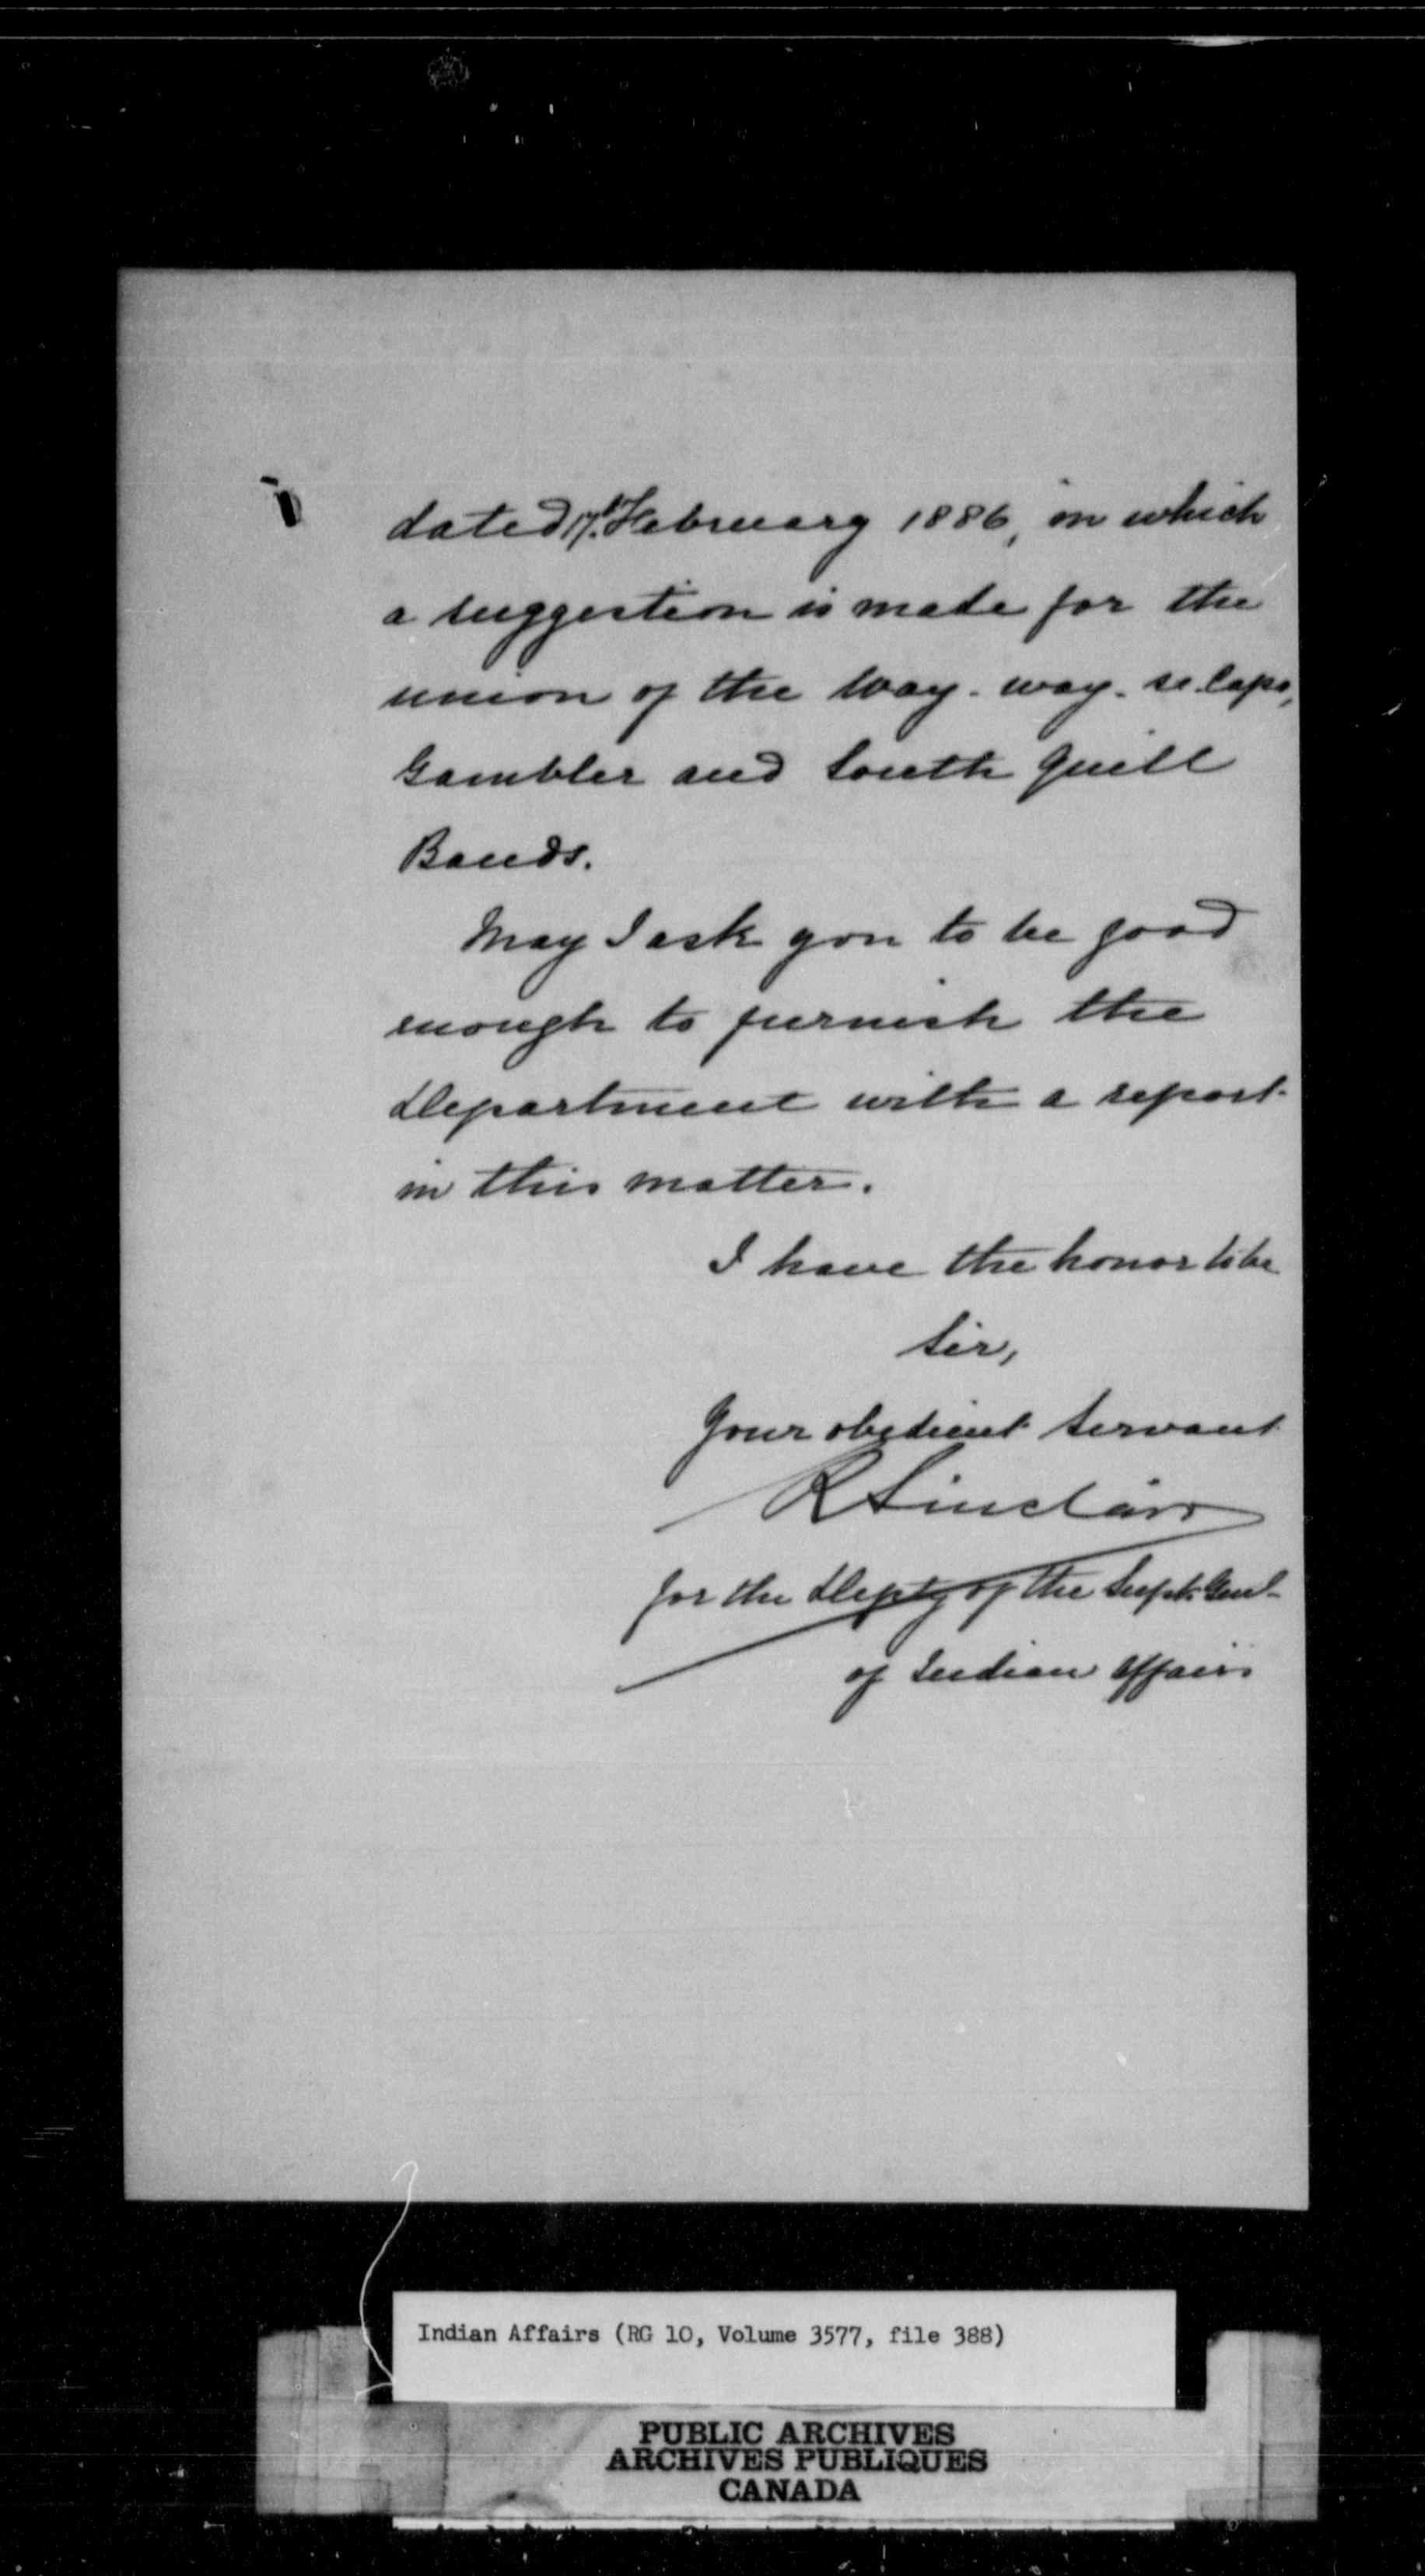 dated 17th February 1886, in which
a suggestion is made for the
union of the Way-way-se-Capo,
Gambler and South Quill
Bands.
May I ask you to be good
enough to furnish the
Department with a report
in this matter.
I have the honor to be
Sir,
Your obedient Servant
R Sinclair
for the Depty of the Supt. Genl
of Indian Affairs
Indian Affairs (RG 10, Volume 3577, file 388)
PUBLIC ARCHIVES
ARCHIVES PUBLIQUES
CANADA